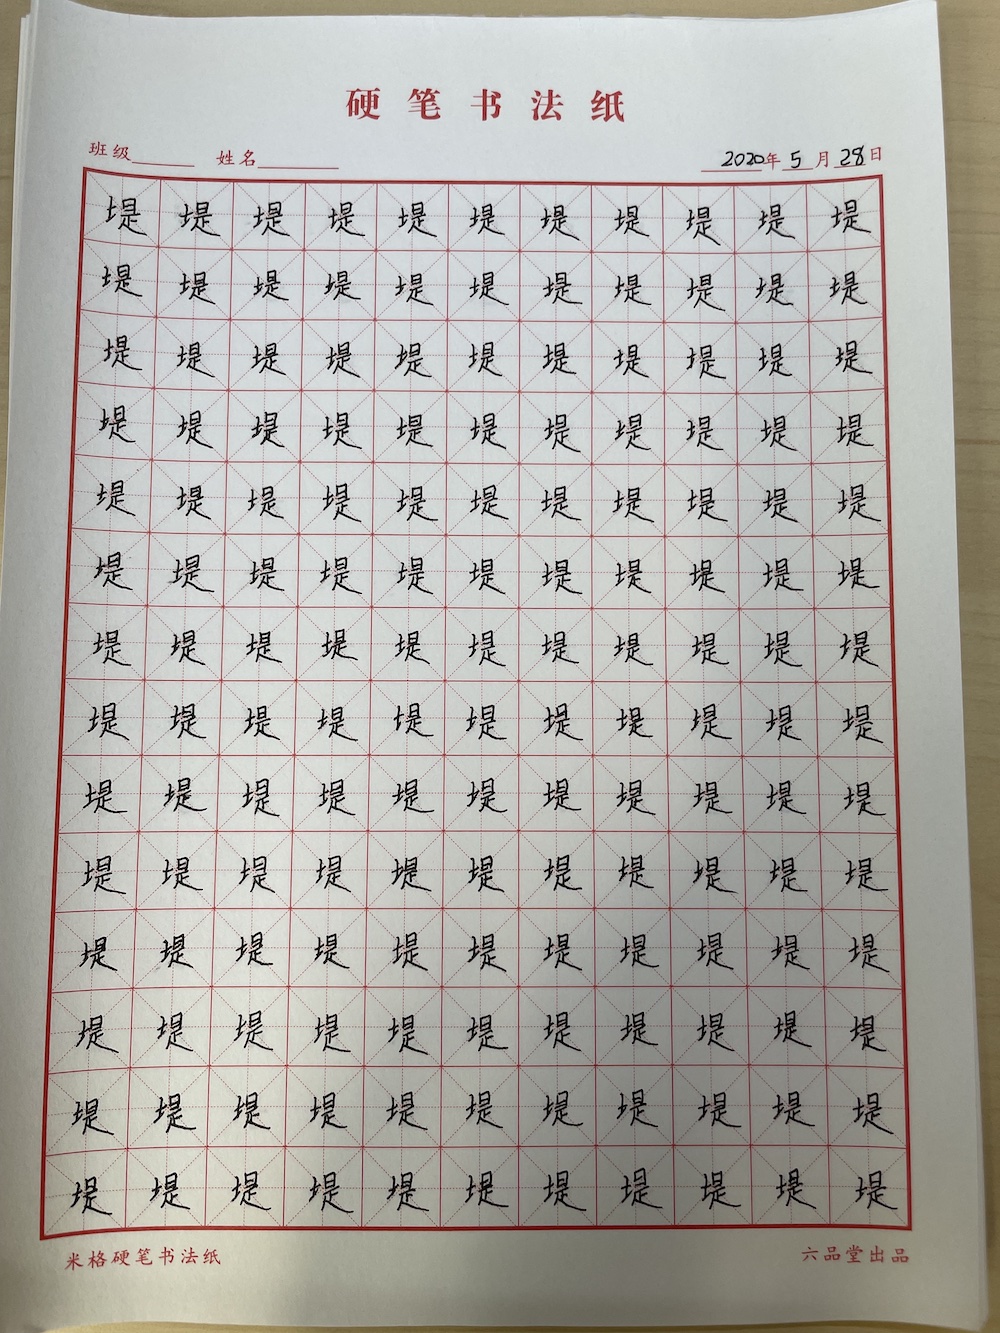 硬笔书法纸
班级 姓名 2020年5月28日
堤堤堤堤堤堤堤堤堤堤堤
堤堤堤堤堤堤堤堤堤堤堤
堤堤堤堤堤堤堤堤堤堤堤
堤堤堤堤堤堤堤堤堤堤堤
堤堤堤堤堤堤堤堤堤堤堤
堤堤堤堤堤堤堤堤堤堤堤
堤堤堤堤堤堤堤堤堤堤堤
堤堤堤堤堤堤堤堤堤堤堤
堤堤堤堤堤堤堤堤堤堤堤
堤堤堤堤堤堤堤堤堤堤堤
堤堤堤堤堤堤堤堤堤堤堤
堤堤堤堤堤堤堤堤堤堤堤
堤堤堤堤堤堤堤堤堤堤堤
堤堤堤堤堤堤堤堤堤堤堤
米格硬笔书法纸 六品堂出品